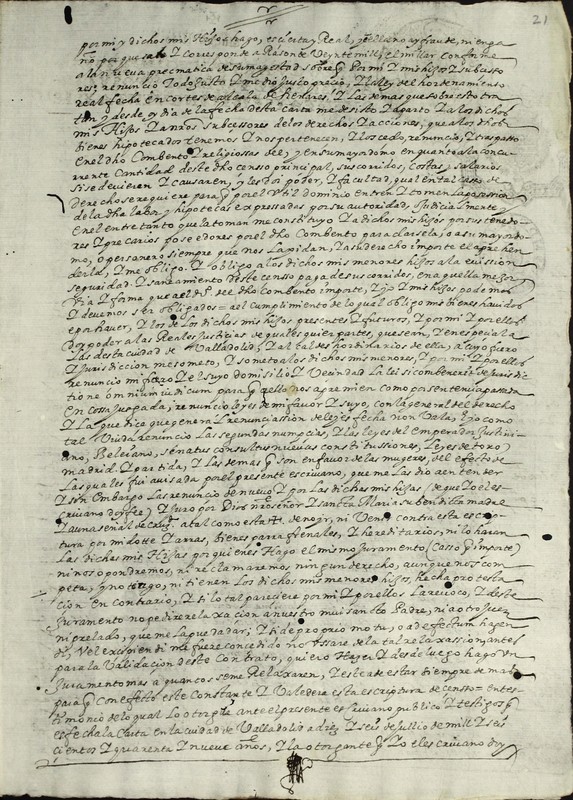 21
por mi y dichos mis Hijos hago, es çierta y Real, y del no ay fraude, ni enga
ño por que sale I corresponde a Rason de Veynte mill el millar conforme
a la nueva precmatica de su magestad sobre Por mi I mis hijos I subçeso
res; renuncio Todo Justo I medio Justo preçio, I la ley del hordenamiento
real fecha en cortes de alcala de Henares I Las demas que sobre esto tra
tan y desde oy dia de la fecha desta carta me desisto I aparto I a los dichos
mis Hijos I a nros subcessores de los derechos I acciones, que a los dhos
bienes hipotecados tenemos I nos perteneçen, I lo çedo, renuncio, I traspasso
en el dho Combento I religiossas del, y en su mayordomo en quanto a la concu
rrente Cantidad deste dho censso prinçipal, sus corridos, costas, y salarios
si se devieren I causaren, y les doi poder, I facultad, qual en tal casso de
derecho se requiere para por el util dominio entren I tomen la possession
de la dha labor y hipotecas expressadas por su autoridad, o Judicialmente
en el entre tanto que la toman me constituyo I a dichos mis hijos por sus tenedo
res I precarios posseedores por el dho Combento para darsela, o a su mayordo
mo, o persona siempre que nos la pidan, I a su derecho importe el aprehen
derla, I me obligo I obligo a los dichos mis menores hijos a la eviçion
seguridad I saneamiento deste censso paga de sus corridos, en aquella mejor
via I forma que a el dho Combento importe, I yo I mis hijos podemos
I devemos ser obligados = a el cumplimiento de lo qual obligo mis bienes havidos
e por haver, I los de los dichos mis hijos presentes I futuros, I por mi I por ellos
doy poder a las Reales Justicias de quales quier partes, que sean, I en espeçial a
las desta ciudad de Valladolid, I al tal de los hordinarios de ella, a cuyo fuero
I Jurisdiccion me someto, I someto a los dichos mis menores, I por mi I por ellos
renuncio mi fuero I el suyo domisilio I Veçindad La lei si combenerit de Jurisdic
tione omnium iudicum para a ello nos apremien como por sentencia passada
en cossa Juzgada, renuncio leyes de mi favor I suyo, con la general del derecho
I la que dice que general renunciassion de leyes fecha non Vala, I yo como
tal Viuda renuncio Las segundas numpçias, I Las leyes del emperador Justini
ano, Beleiano, senatus consultus nuevas constitussiones, Leyes de toro
madrid I partida, I Las demas son en favor de las mugeres, del efecto de
Las quales fui avisada por el presente escrivano, que me Las dio a entender
I sin embargo Las renunçio de nuevo I por Las dichas mis hijas (de que Io el es
crivano doy fee) I Juro por Dios nro señor I santa Maria su bendita madre
I a una señal de cruz, a tal como esta + de no yr, ni Venir contra esta escrip
tura por mi dotte I arras, bienes parrafrenales, I hereditarios, ni lo haran
Las dichas mis Hijas por quienes Hago el mismo Juramento (casso importe)
ni nos opondremos, ni reclamaremos ningun derecho, aunque nos com
peta, y no tengo, ni tienen Los dichos mis menores hijos hecha protesta
cion en contrario, I si lo tal pareciere por mi I por ellos La revoco, I deste
Juramento no pedire relaxaçion a nuestro mui santo Padre, ni a otro Juez
ni prelado, que me la pueda dar; I si de proprio motu, o ad efectum agen
di, Vel excipiendi me fuere concedido no Ussare de la tal relaxassion, antes
para la Validacion deste Contrato, quiero Hazer I desde luego hago un
Juramento mas a quantos se me Relaxaren, I este a de estar siempre de mas
para con efecto este Constante I Valedera esta escriptura de censso = en tes
timonio de lo qual Lo otorgue ante el presente escrivano publico I testigos
es fecha la Carta en la cuidad de Valladolid a diez I seis de Jullio de mill I seis
cientos I quarenta I nueve años, I la otorgante Io el escrivano doy